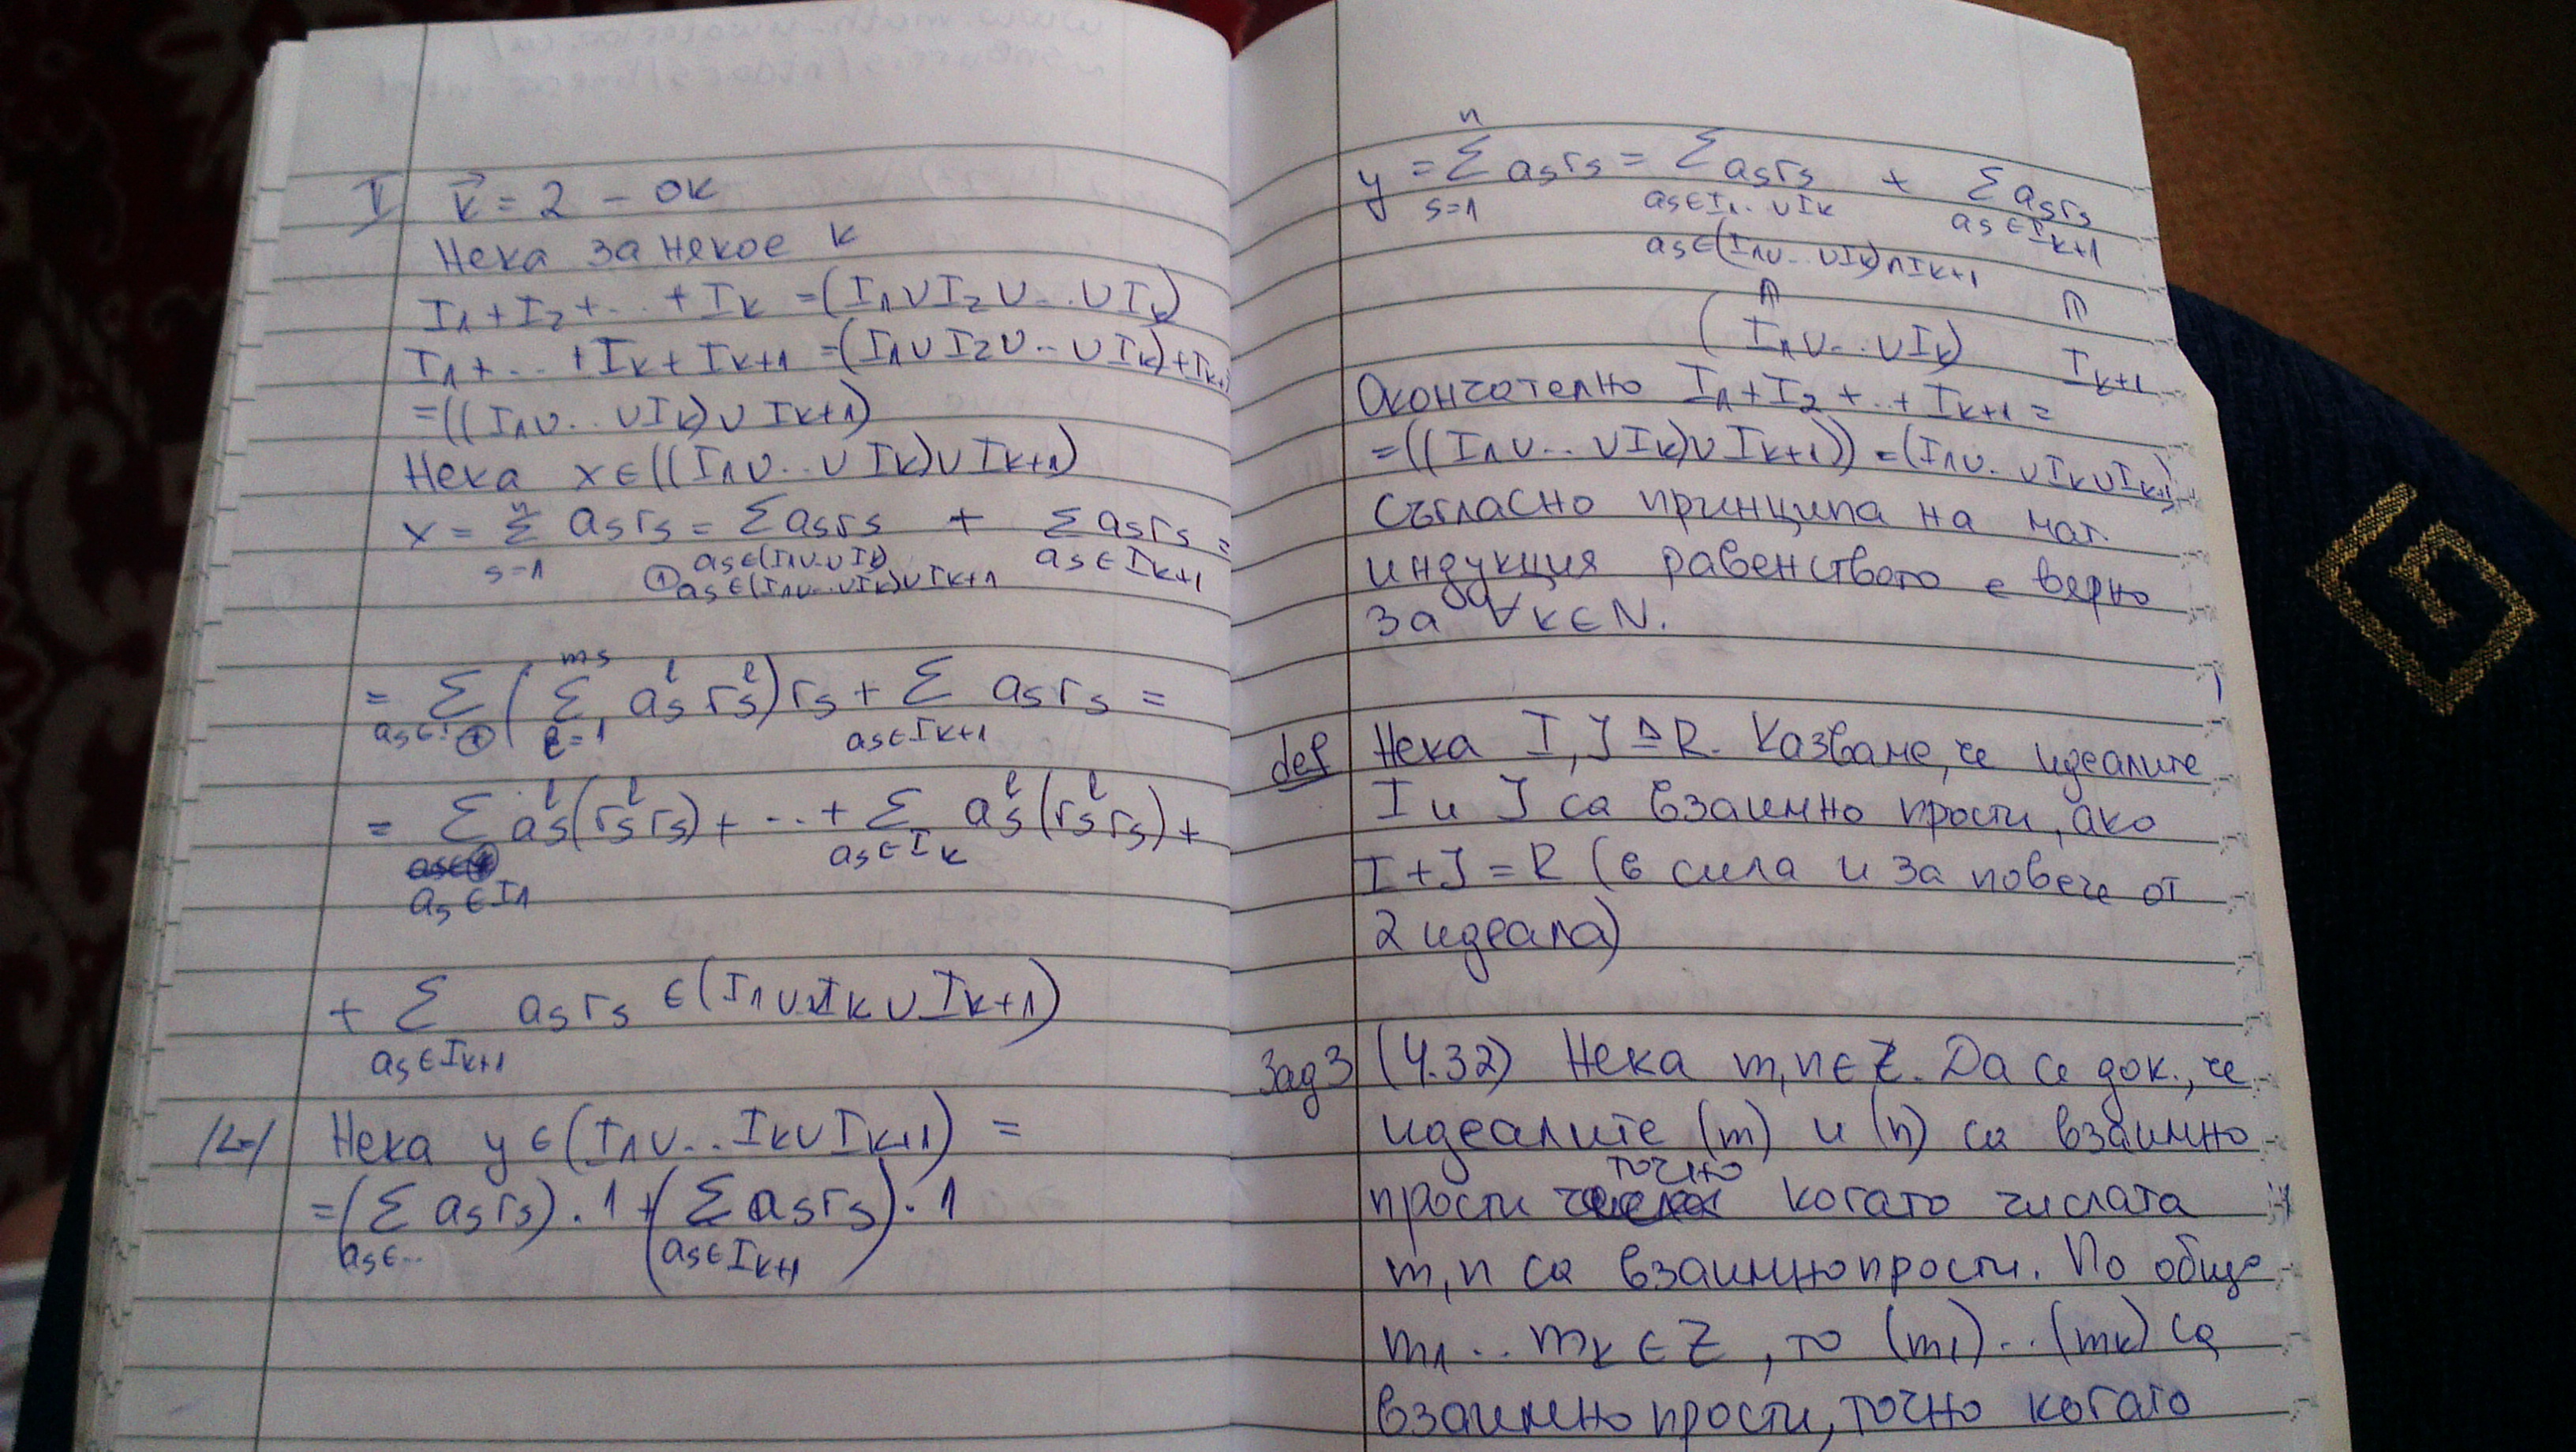 I k = 2 – ок
Нека за някое k
I₁ + I₂ + .. + Iₖ = (I₁∪I₂∪..∪Iₖ)
I₁ + .. + Iₖ + Iₖ₊₁ = (I₁∪I₂∪..∪Iₖ) + Iₖ₊₁
= ((I₁∪..∪Iₖ)∪Iₖ₊₁)
Нека x ∈ ((I₁∪..∪Iₖ)∪Iₖ₊₁)
n
x = Σ aₛrₛ = Σ aₛrₛ + Σ aₛrₛ =
s=1 aₛ∈(I₁∪..∪Iₖ) aₛ∈Iₖ₊₁
aₛ∈(I₁∪..∪Iₖ)∪Iₖ₊₁
mₛ
= Σ ( Σ aₛˡ rₛˡ) rₛ + Σ aₛ rₛ =
aₛ∈ ⊕ l=1 aₛ∈Iₖ₊₁
= Σ aₛˡ(rₛˡrₛ) + .. + Σ aₛˡ(rₛˡrₛ) +
aₛ∈Iₖ
aₛ∈I₁
+ Σ aₛrₛ ∈ (I₁∪..Iₖ∪Iₖ₊₁)
aₛ∈Iₖ₊₁
Нека y ∈ (I₁∪..Iₖ∪Iₖ₊₁) =
= (Σ aₛrₛ).1 + (Σ aₛrₛ).1
aₛ∈.. aₛ∈Iₖ₊₁
n
y = Σ aₛrₛ = Σ aₛrₛ + Σ aₛrₛ
s=1 aₛ∈I₁..∪Iₖ aₛ∈Iₖ₊₁
aₛ∈(I₁∪..∪Iₖ)∩Iₖ₊₁
(I₁∪..∪Iₖ) Iₖ₊₁
Окончателно I₁+I₂+..+Iₖ₊₁ =
= ((I₁∪..∪Iₖ)∪Iₖ₊₁)) = (I₁∪..∪Iₖ∪Iₖ₊₁)
Съгласно принципа на мат.
индукция равенството е вярно
за ∀k∈N.
def Нека I, J ⊴ R. Казваме, че идеалите
I и J са взаимно прости, ако
I + J = R (в сила и за повече от
2 идеала)
Зад 3 (4.32) Нека m, n ∈ Z. Да се док., че
идеалите (m) и (n) са взаимно
прости точно когато числата
m, n са взаимнопрости. По общо
m₁ .. mₖ ∈ Z, то (m₁)..(mₖ) са
взаимно прости, точно когато